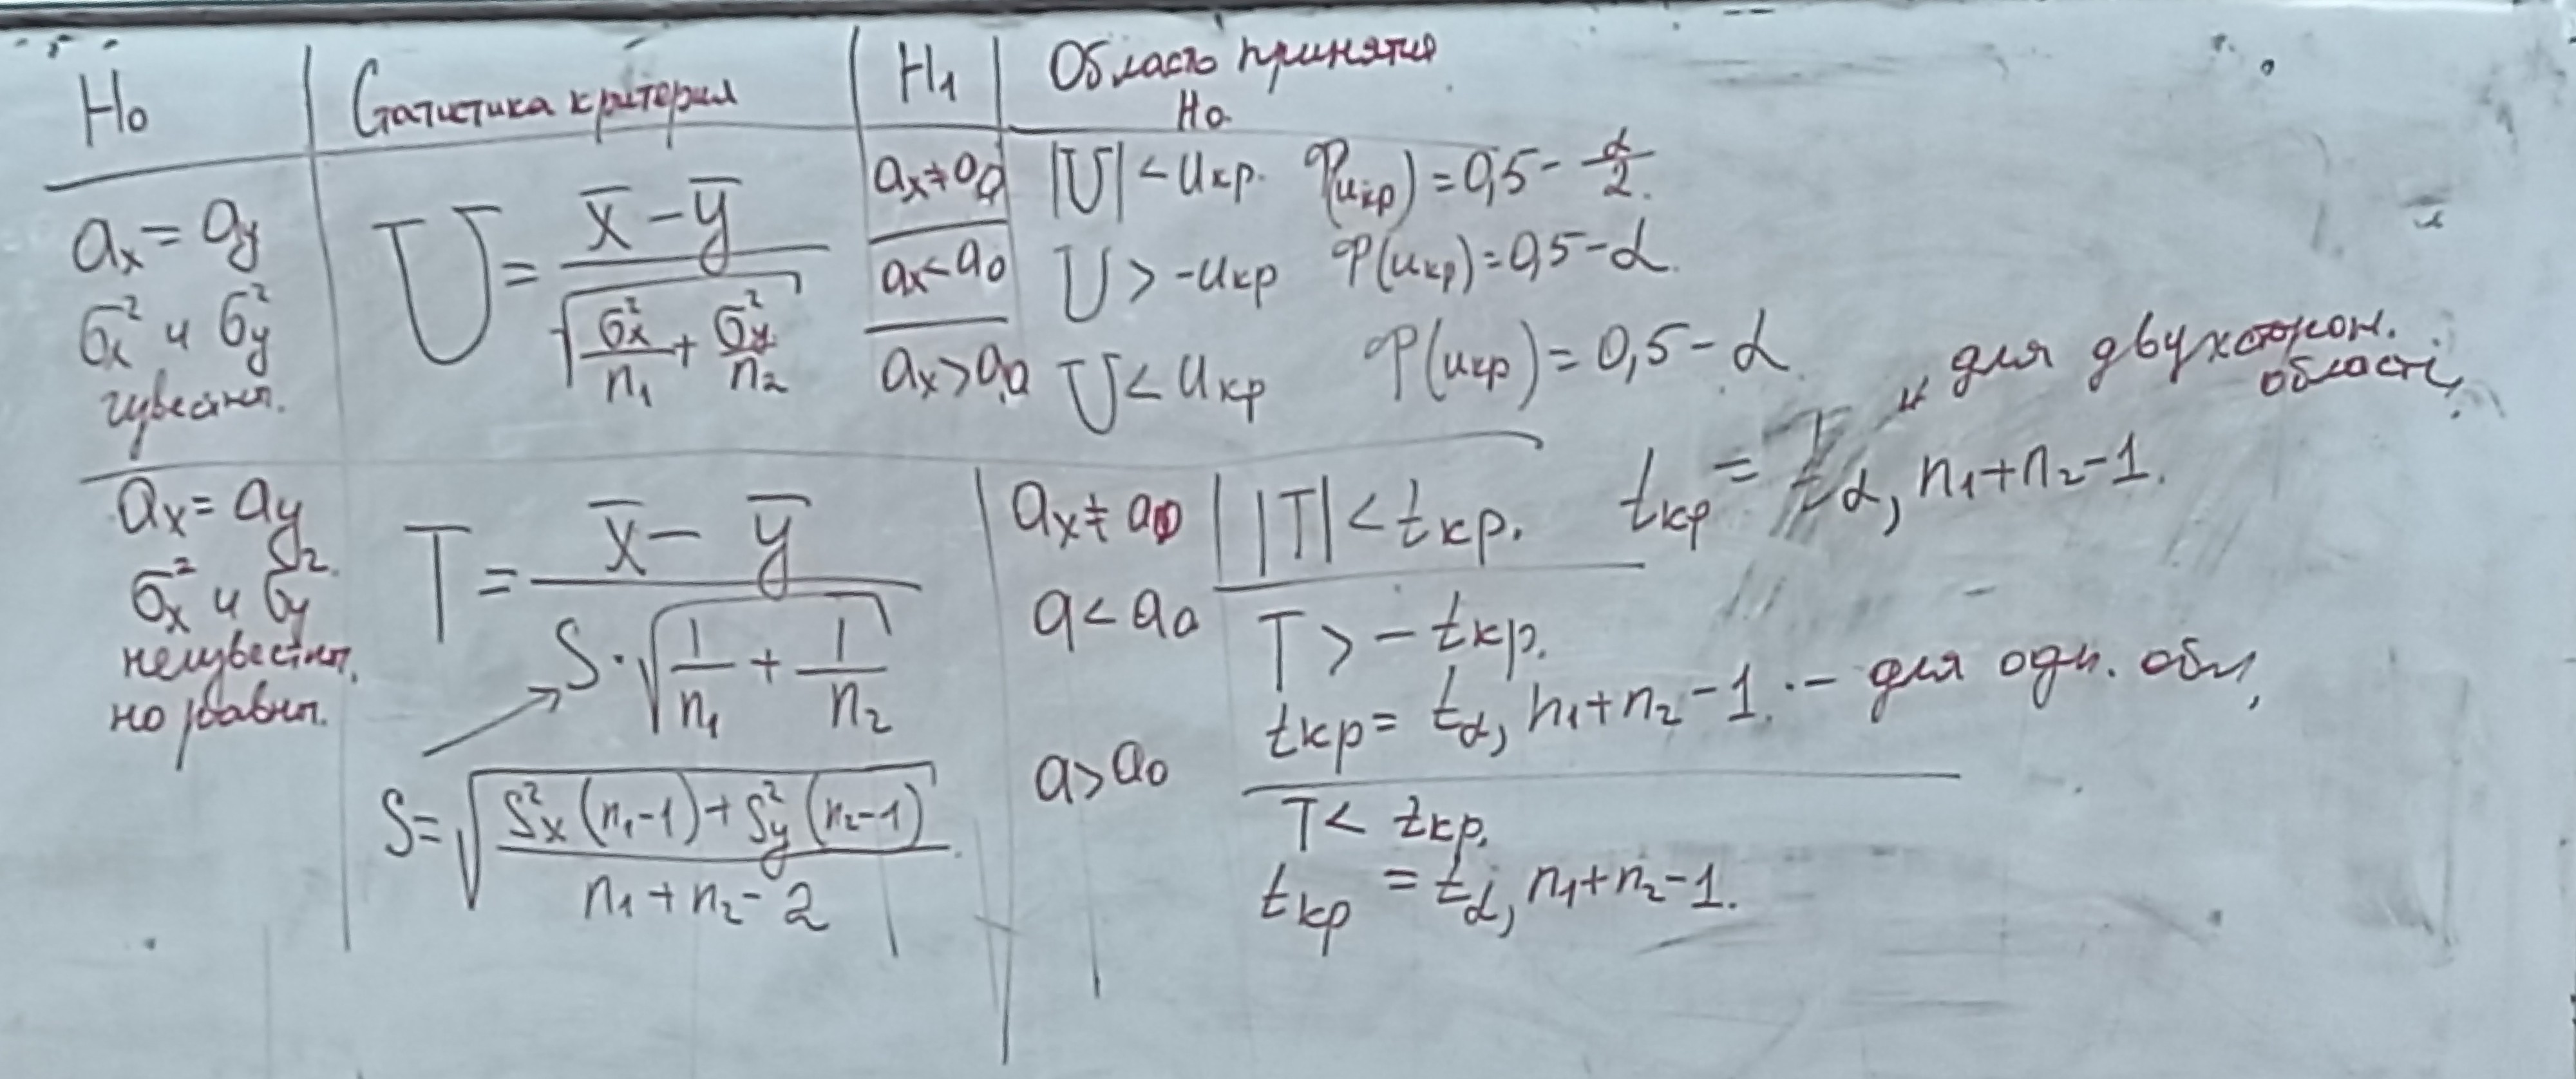 H₀ | Статистика критерия | H₁ | Область принятия H₀
aₓ = a_y
σₓ² и σ_y²
известн.
U = (x̄ − ȳ) / √(σₓ²/n₁ + σ_y²/n₂)
aₓ ≠ a₀ | |U| < uкр. Φ(uкр) = 0,5 − α/2.
aₓ < a₀ | U > −uкр Φ(uкр) = 0,5 − α.
aₓ > a₀ | U < uкр Φ(uкр) = 0,5 − α
aₓ = a_y
σₓ² и σ_y².
неизвестн.
но равны.
T = (x̄ − ȳ) / (S · √(1/n₁ + 1/n₂))
S = √((Sₓ²(n₁−1) + S_y²(n₂−1)) / (n₁ + n₂ − 2))
aₓ ≠ a₀ | |T| < tкр. tкр = t α, n₁+n₂−1. для двухсторон. области,
a < a₀ | T > − tкр.
tкр = t α, n₁+n₂−1. — для одн. обл,
a > a₀ | T < tкр.
tкр = t α, n₁+n₂−1.